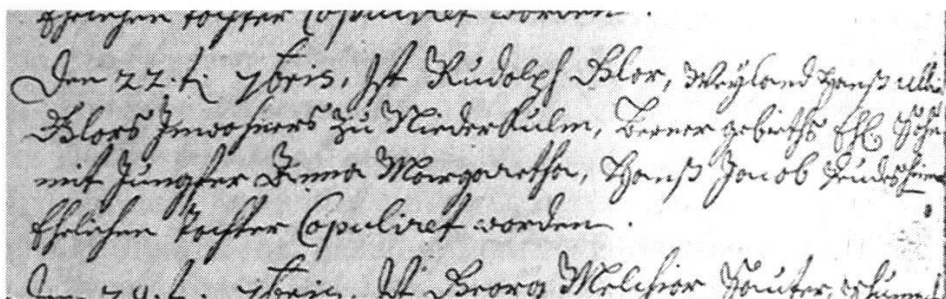 Ehelichen tochter Copuliret worden.
Den 22.t. 7bris, Ist Rudolph Blor, Weyland Hanß Ulli
Blors Inwohners zu Niederkulm, Berner gebieths Ehl. Sohn
mit Jungfer Anna Margaretha, Hanß Jacob
Ehelichen tochter Copuliret worden.
7bris, Ist Georg Melchior Sauter,